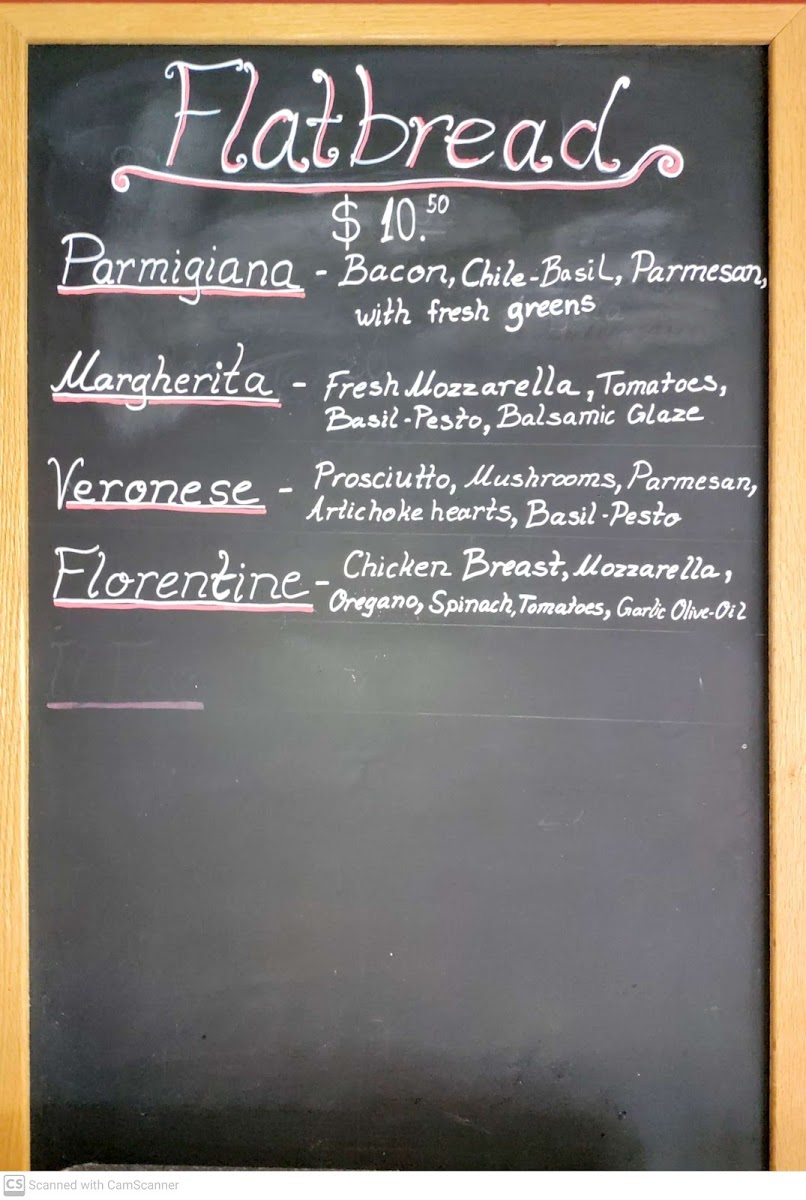 Flatbread
$ 10.50
Parmigiana - Bacon, Chile-Basil, Parmesan,
with fresh greens
Margherita - Fresh Mozzarella, Tomatoes,
Basil-Pesto, Balsamic Glaze
Veronese - Prosciutto, Mushrooms, Parmesan,
Artichoke hearts, Basil-Pesto
Florentine - Chicken Breast, Mozzarella,
Oregano, Spinach, Tomatoes, Garlic Olive-Oil
CS Scanned with CamScanner